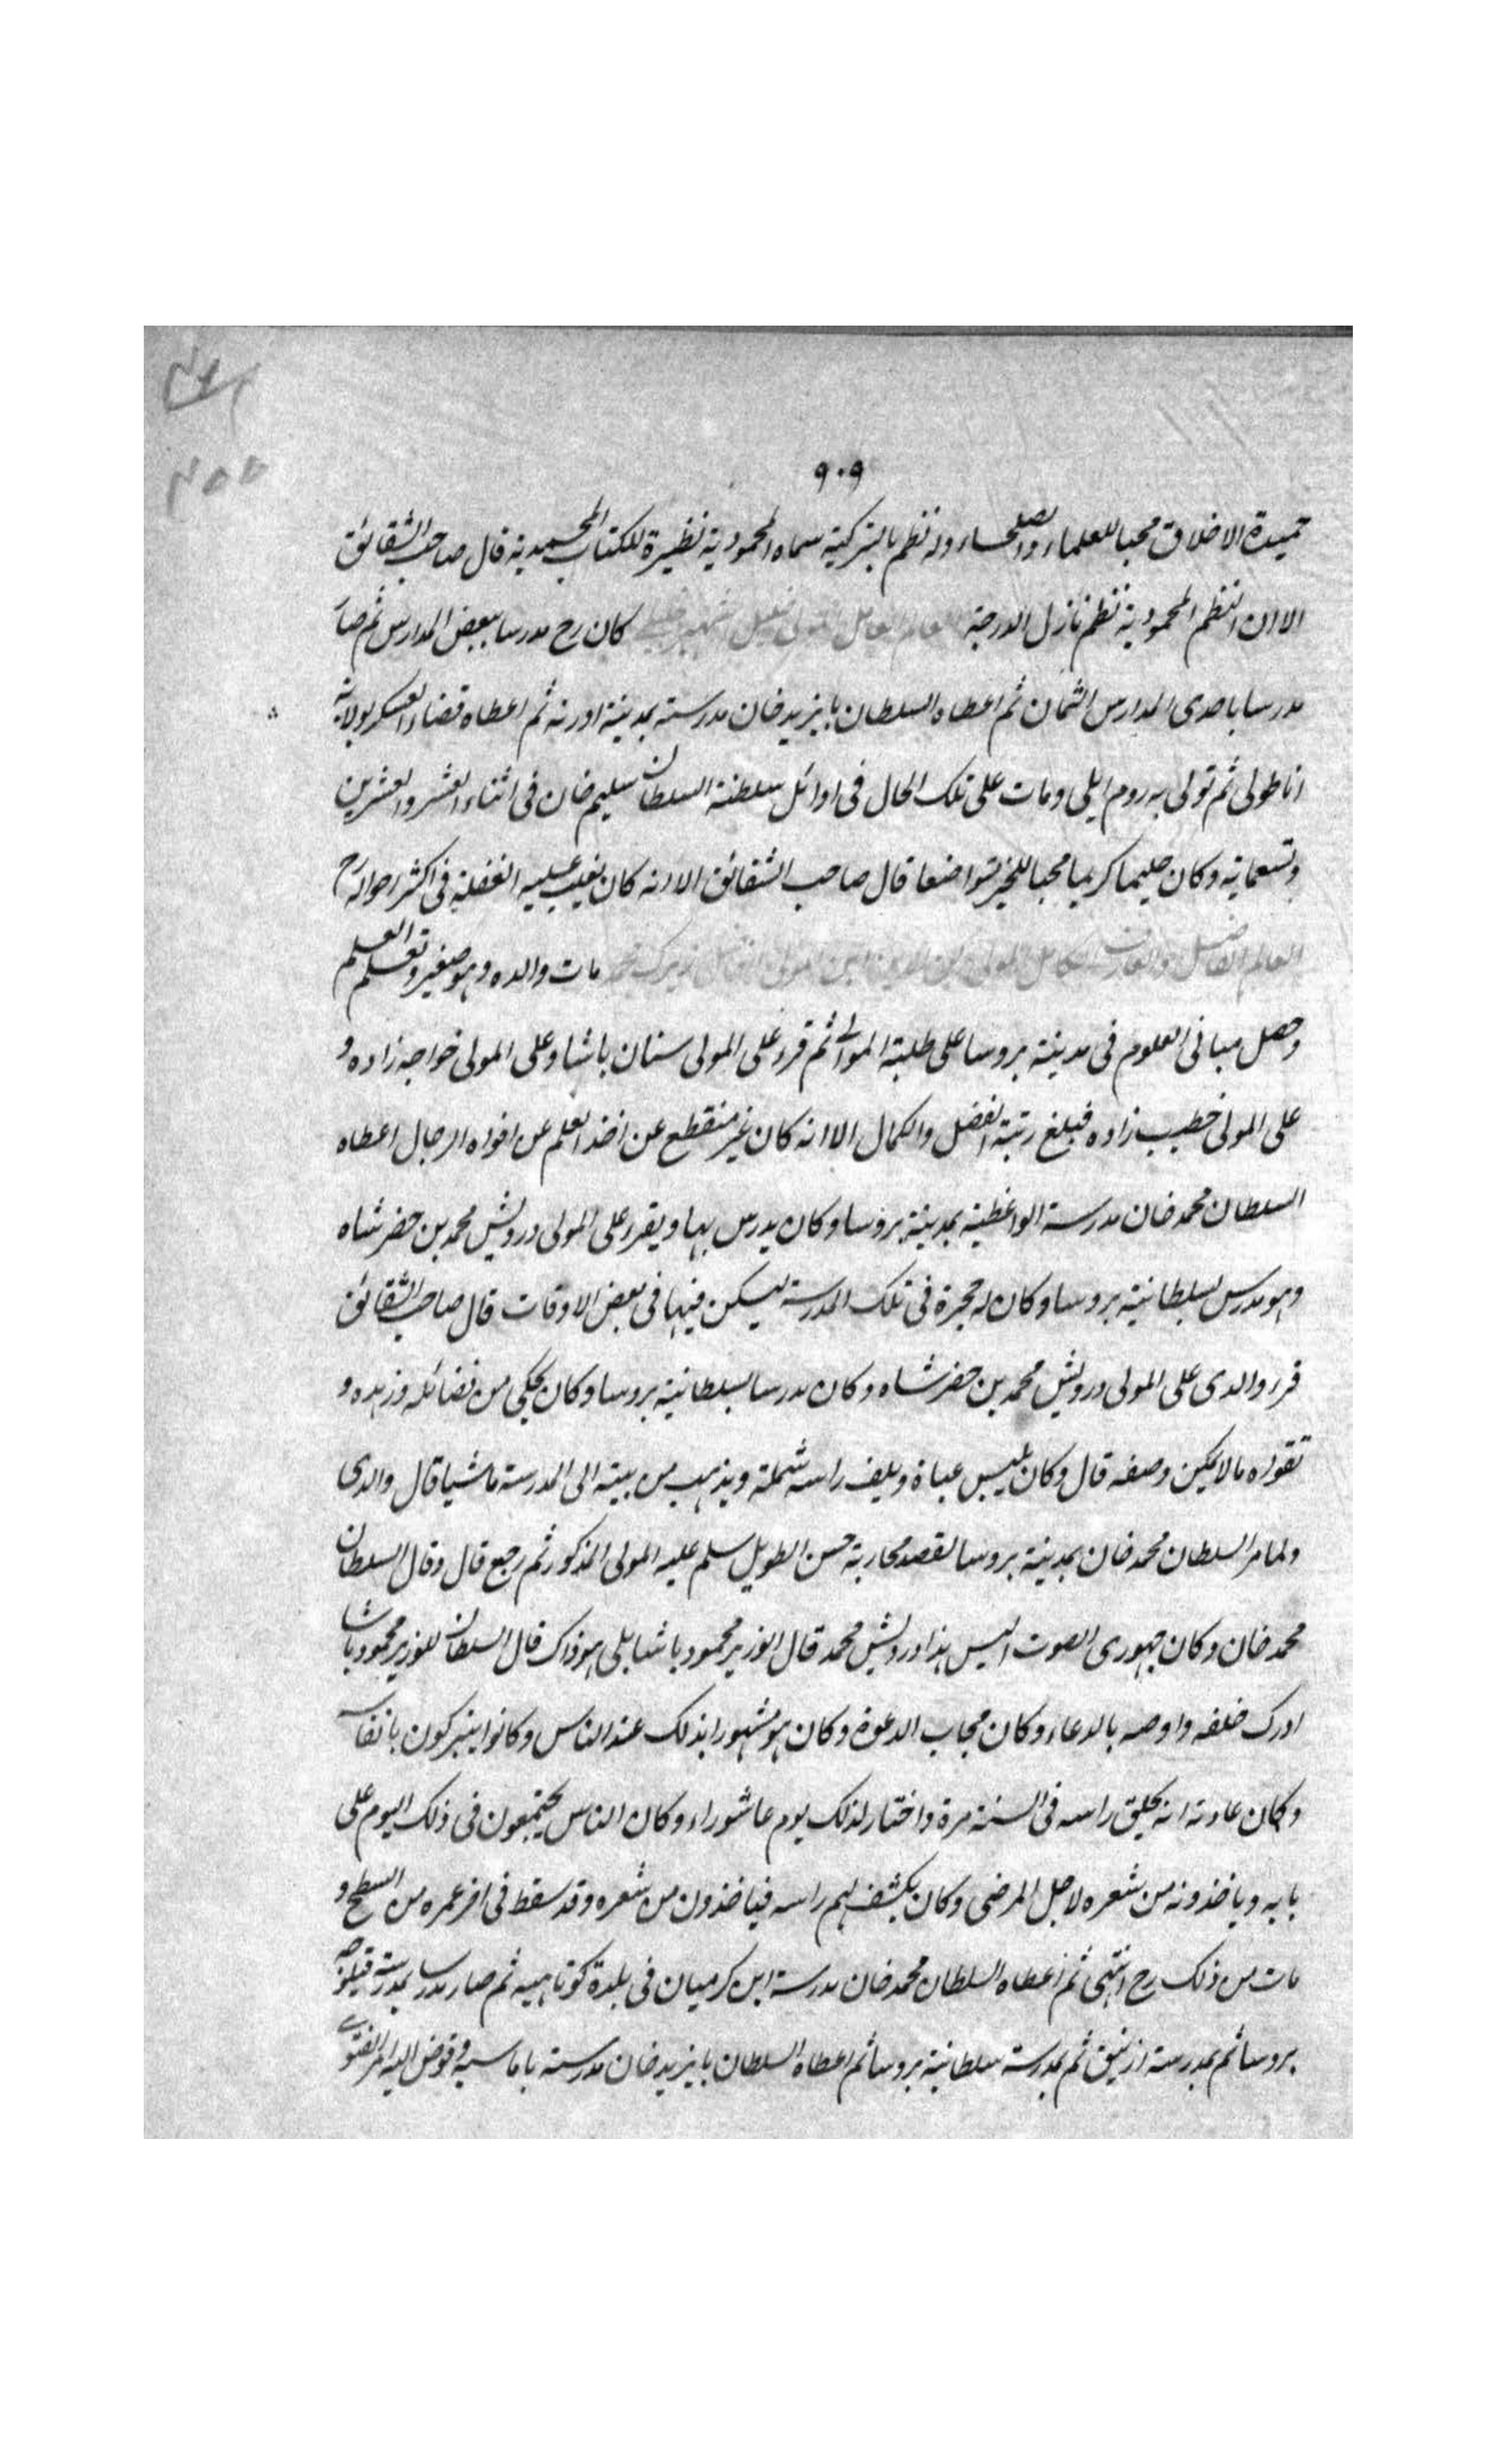 ٩٠٩
حميدة الاخلاق محبا للعلماء والصلحاء وله نظم بالتركية سماه المحمودية نظيرة للكتاب المحمدية قال صاحب الشقائق
الا ان النظم المحمودية نظم نازل الدرجة العالم العامل المولى خليل الشهير كان رح مدرسا ببعض المدارس ثم صار
مدرسا باحدى المدارس الثمان ثم اعطاه السلطان بايزيد خان مدرسته بمدينة ادرنه ثم اعطاه قضاء العسكر بولاية
اناطولى ثم تولى به روم ايلى ومات على تلك الحال فى اوائل سلطنة السلطان سليم خان فى اثناء العشر والعشرين
وتسعماية وكان حليما كريما محبا للخير متواضعا قال صاحب الشقائق الا انه كان يغلب عليه الغفلة فى اكثر احواله رح
العالم الفاضل والعارف الكامل المولى ركن الدين ابن المولى الفاضل زيرك محمد مات والده وهو صغير وتعلم العلم
وحصل مبانى العلوم فى مدينة بروسا على طلبة الموالى ثم قرء على المولى سنان باشا وعلى المولى خواجه زاده و
على المولى خطيب زاده فبلغ رتبة الفضل والكمال الا انه كان غير منقطع عن اخذ العلم عن افواه الرجال اعطاه
السلطان محمد خان مدرسة الواعظية بمدينة بروسا وكان يدرس بها ويقرء على المولى درويش محمد بن خضر شاه
وهو مدرس بسلطانية بروسا وكان له حجرة فى تلك المدرسة يسكن فيها فى بعض الاوقات قال صاحب الشقائق
قرء والدى على المولى درويش محمد بن خضر شاه وكان مدرسا بسلطانية بروسا وكان يحكى من فضائله وزهده و
تقواه ما لا يمكن وصفه قال وكان يلبس عباة ويلف راسه شملة ويذهب من بيته الى المدرسة ماشيا قال والدى
ولما مر السلطان محمد خان بمدينة بروسا لقصد محاربة حسن الطويل سلم عليه المولى المذكور ثم رجع قال وقال السلطان
محمد خان وكان جهورى الصوت اليس هذا درويش محمد قال الوزير محمود باشا بلى هو ذاك قال السلطان للوزير محمود باشا
ادرك خلفه واوصه بالدعاء وكان مجاب الدعوة وكان هو مشهورا بذلك عند الناس وكانوا يتبركون بانفاسه
وكان عادته انه يحلق راسه فى السنة مرة واختار لذلك يوم عاشوراء وكان الناس يجتمعون فى ذلك اليوم على
بابه وياخذونه من شعره لاجل المرضى وكان يكشف لهم راسه فياخذون من شعره وقد سقط فى اخر عمره من السطح و
مات من ذلك رح انتهى ثم اعطاه السلطان محمد خان مدرسة ابن كرميان فى بلدة كوتاهيه ثم صار مدرسا بمدرسة قبلوجه
بروسا ثم بمدرسة ازنيق ثم بمدرسة سلطانية بروسا ثم اعطاه السلطان بايزيد خان مدرسته باماسيه وفوض اليه امر الفتوى